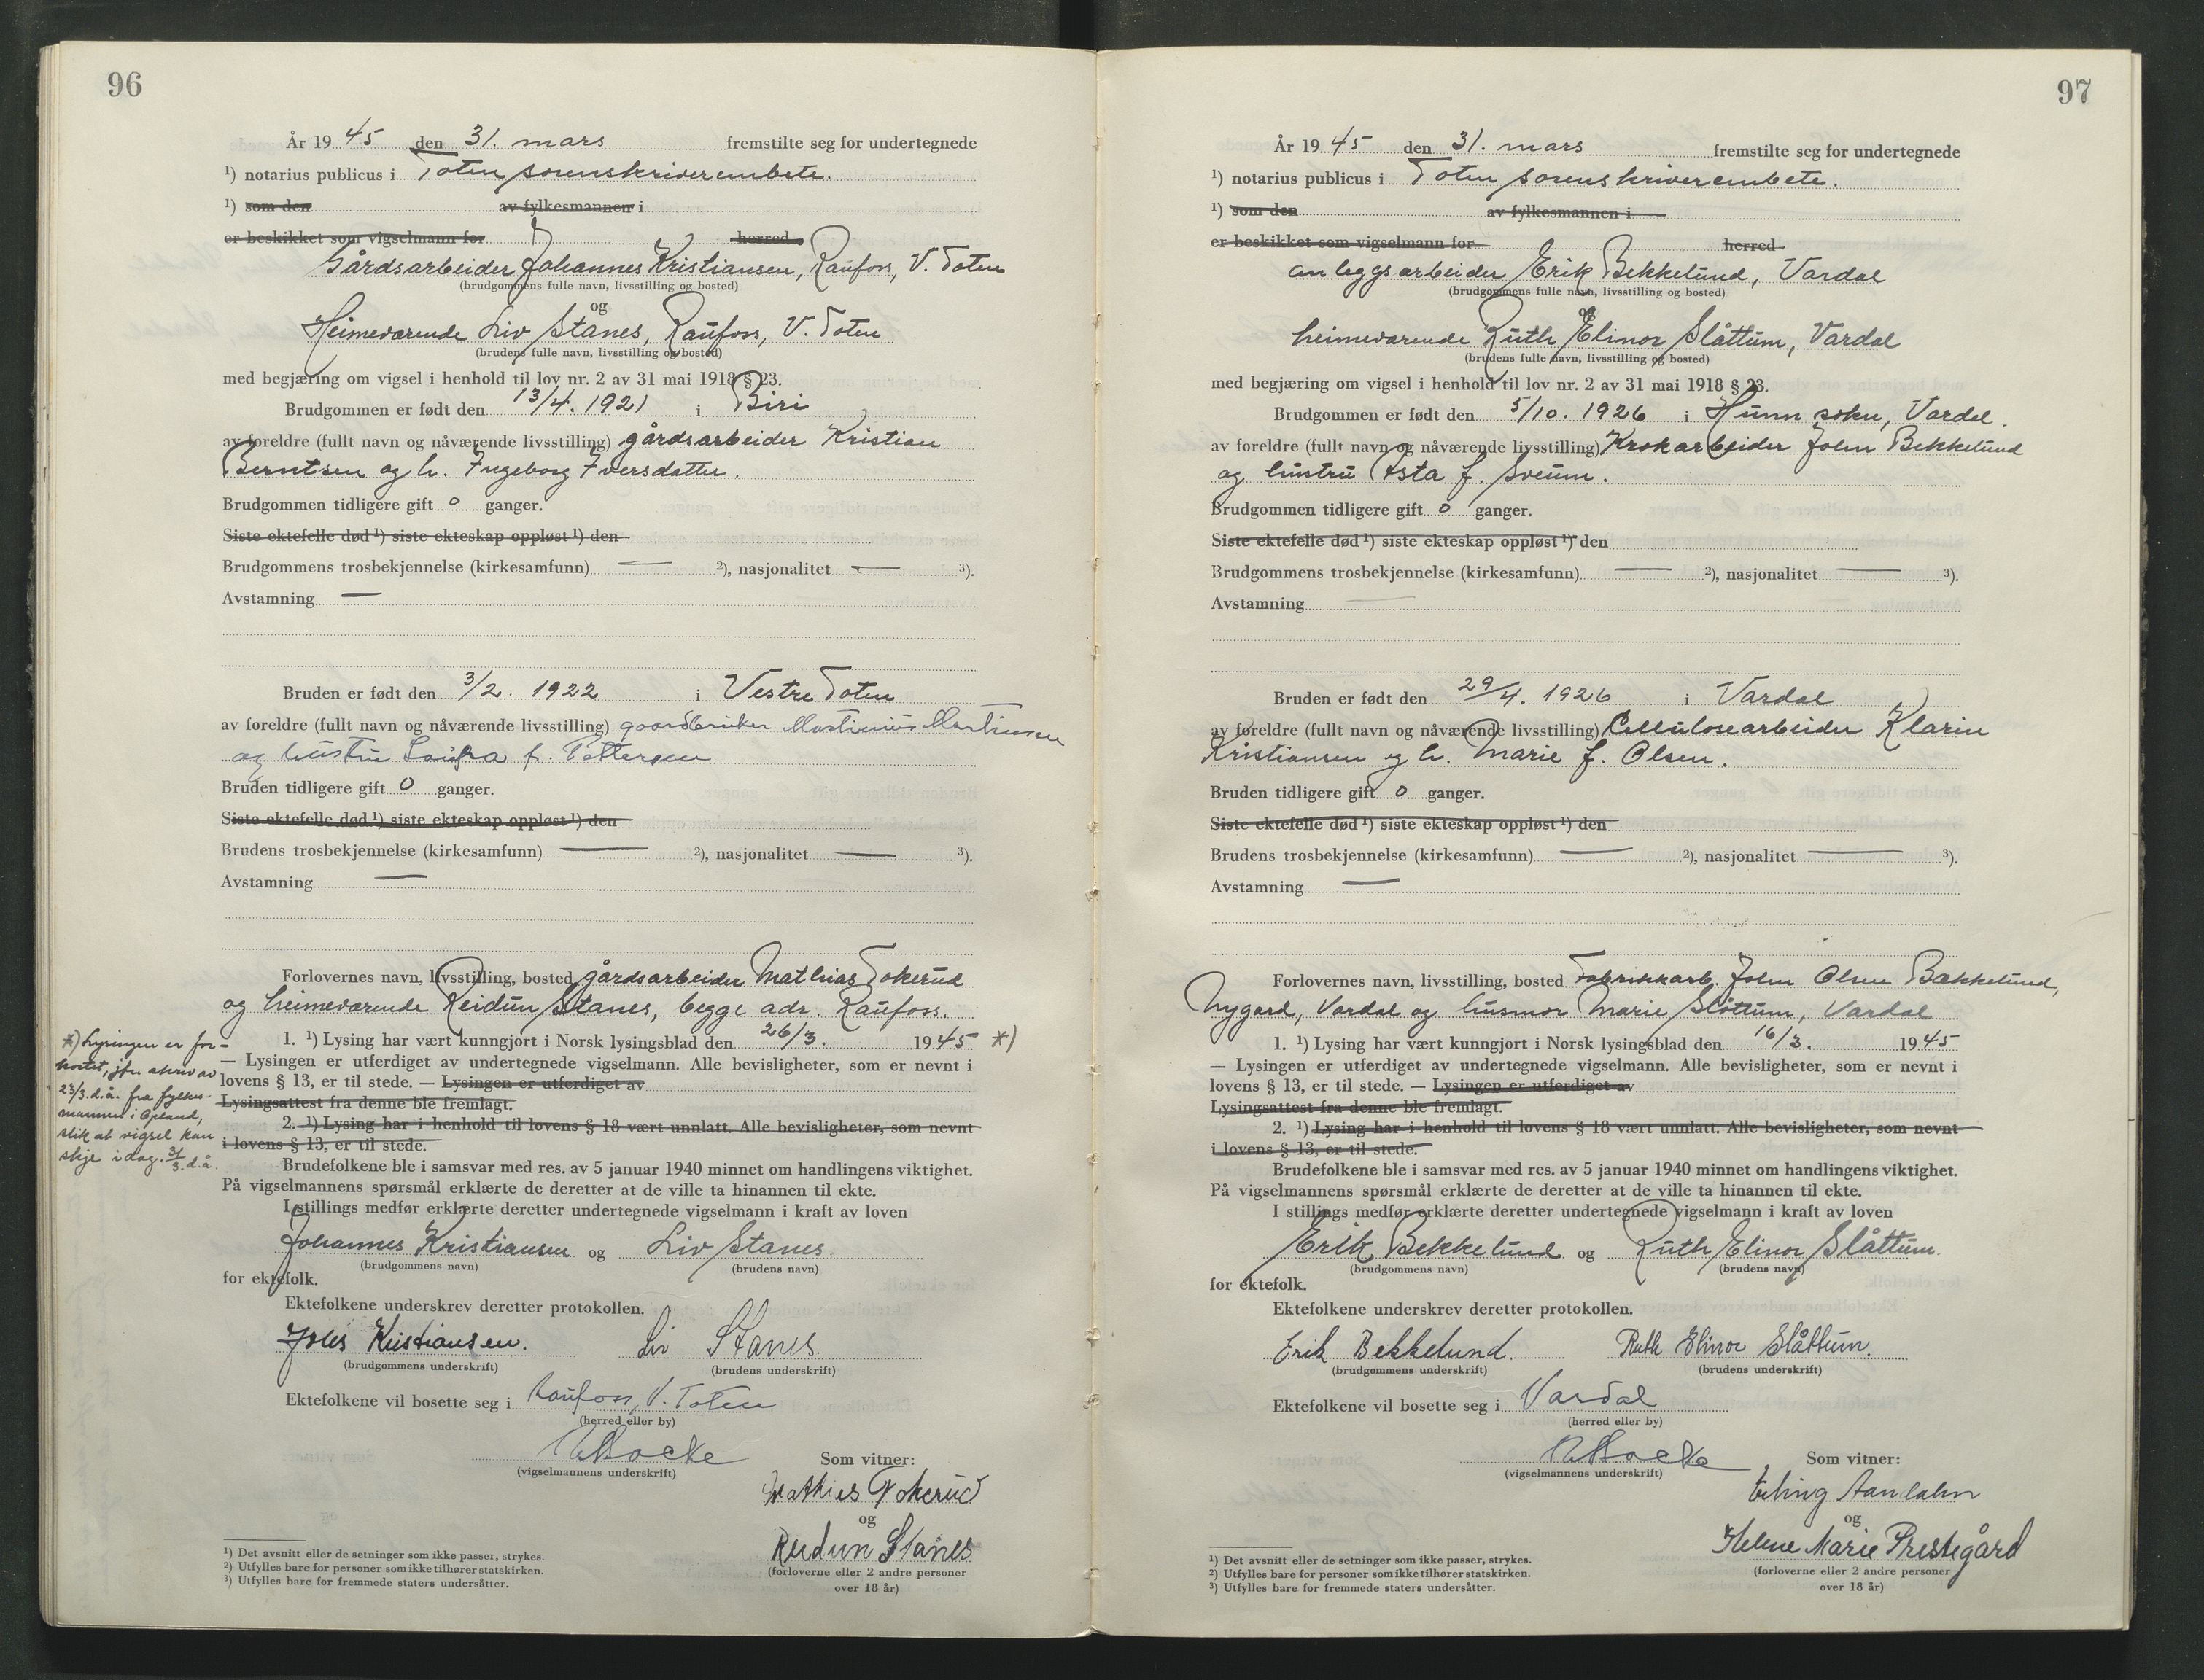 96
År 1945 den 31. mars fremstilte seg for undertegnede
¹) notarius publicus i Toten sorenskriverembete.
¹) som den av fylkesmannen i
er beskikket som vigselmann for herred
Gårdsarbeider Johannes Kristiansen, Raufoss, V. Toten
(brudgommens fulle navn, livsstilling og bosted)
og
Heimeværende Liv Stanes, Raufoss, V. Toten
(brudens fulle navn, livsstilling og bosted)
med begjæring om vigsel i henhold til lov nr. 2 av 31 mai 1918 § 23.
Brudgommen er født den 13/4. 1921 i Biri
av foreldre (fullt navn og nåværende livsstilling) gårdsarbeider Kristian
Berntsen og h. Ingeborg Iversdatter.
Brudgommen tidligere gift 0 ganger.
Siste ektefelle død ¹) siste ekteskap oppløst ¹) den
Brudgommens trosbekjennelse (kirkesamfunn) — ²), nasjonalitet — ³).
Avstamning —
Bruden er født den 3/2. 1922 i Vestre Toten
av foreldre (fullt navn og nåværende livsstilling) gaardbruker Martinius Martinsen
og hustru f. Pettersen
Bruden tidligere gift 0 ganger.
Siste ektefelle død ¹) siste ekteskap oppløst ¹) den
Brudens trosbekjennelse (kirkesamfunn) — ²), nasjonalitet — ³).
Avstamning —
Forlovernes navn, livsstilling, bosted gårdsarbeider Mathias Tokerud
og heimeværende Reidun Stanes, begge adr. Raufoss.
1. ¹) Lysing har vært kunngjort i Norsk lysingsblad den 26/3. 1945 *)
— Lysingen er utferdiget av undertegnede vigselmann. Alle bevisligheter, som er nevnt i
lovens § 13, er til stede. — Lysingen er utferdiget av
Lysingsattest fra denne ble fremlagt.
2. ¹) Lysing har i henhold til lovens § 18 vært unnlatt. Alle bevisligheter, som nevnt
i lovens § 13, er til stede.
*) Lysingen er for-
kortet, jfr. skriv av
23/3. d.å. fra fylkes-
mannen i Opland,
slik at vigsel kan
skje i dag. 31/3. d.å.
Brudefolkene ble i samsvar med res. av 5 januar 1940 minnet om handlingens viktighet.
På vigselmannens spørsmål erklærte de deretter at de ville ta hinannen til ekte.
I stillings medfør erklærte deretter undertegnede vigselmann i kraft av loven
Johannes Kristiansen og Liv Stanes
(brudgommens navn) (brudens navn)
for ektefolk.
Ektefolkene underskrev deretter protokollen.
Johs Kristiansen. Liv Stanes
(brudgommens underskrift) (brudens underskrift)
Ektefolkene vil bosette seg i Raufoss, V. Toten
(herred eller by)
(vigselmannens underskrift)
Som vitner:
Mathias Tokerud
og
Reidun Stanes
(forloverne eller 2 andre personer
over 18 år)
¹) Det avsnitt eller de setninger som ikke passer, strykes.
²) Utfylles bare for personer som ikke tilhører statskirken.
³) Utfylles bare for fremmede staters undersåtter.
97
År 1945 den 31. mars fremstilte seg for undertegnede
¹) notarius publicus i Toten sorenskriverembete.
¹) som den av fylkesmannen i
er beskikket som vigselmann for herred
anleggsarbeider Erik Bekkelund, Vardal
(brudgommens fulle navn, livsstilling og bosted)
og
heimeværende Ruth Elinor Slåttum, Vardal
(brudens fulle navn, livsstilling og bosted)
med begjæring om vigsel i henhold til lov nr. 2 av 31 mai 1918 § 23.
Brudgommen er født den 5/10. 1926 i Hunn sokn, Vardal.
av foreldre (fullt navn og nåværende livsstilling) Krokarbeider John Bekkelund
og hustru Asta f. Sveum.
Brudgommen tidligere gift 0 ganger.
Siste ektefelle død ¹) siste ekteskap oppløst ¹) den
Brudgommens trosbekjennelse (kirkesamfunn) — ²), nasjonalitet — ³).
Avstamning —
Bruden er født den 29/4. 1926 i Vardal
av foreldre (fullt navn og nåværende livsstilling) Cellulosearbeider Klarin
Kristiansen og h. Marie f. Olsen.
Bruden tidligere gift 0 ganger.
Siste ektefelle død ¹) siste ekteskap oppløst ¹) den
Brudens trosbekjennelse (kirkesamfunn) — ²), nasjonalitet — ³).
Avstamning —
Forlovernes navn, livsstilling, bosted Fabrikkarb. John Olsen Bækkelund,
Nygard, Vardal og husmor Marie Slåttum, Vardal
1. ¹) Lysing har vært kunngjort i Norsk lysingsblad den 16/3. 1945
— Lysingen er utferdiget av undertegnede vigselmann. Alle bevisligheter, som er nevnt i
lovens § 13, er til stede. — Lysingen er utferdiget av
Lysingsattest fra denne ble fremlagt.
2. ¹) Lysing har i henhold til lovens § 18 vært unnlatt. Alle bevisligheter, som nevnt
i lovens § 13, er til stede.
Brudefolkene ble i samsvar med res. av 5 januar 1940 minnet om handlingens viktighet.
På vigselmannens spørsmål erklærte de deretter at de ville ta hinannen til ekte.
I stillings medfør erklærte deretter undertegnede vigselmann i kraft av loven
Erik Bekkelund og Ruth Elinor Slåttum
(brudgommens navn) (brudens navn)
for ektefolk.
Ektefolkene underskrev deretter protokollen.
Erik Bekkelund Ruth Elinor Slåttum.
(brudgommens underskrift) (brudens underskrift)
Ektefolkene vil bosette seg i Vardal
(herred eller by)
(vigselmannens underskrift)
Som vitner:
Erling
og
Helene Marie Prestegård
(forloverne eller 2 andre personer
over 18 år)
¹) Det avsnitt eller de setninger som ikke passer, strykes.
²) Utfylles bare for personer som ikke tilhører statskirken.
³) Utfylles bare for fremmede staters undersåtter.